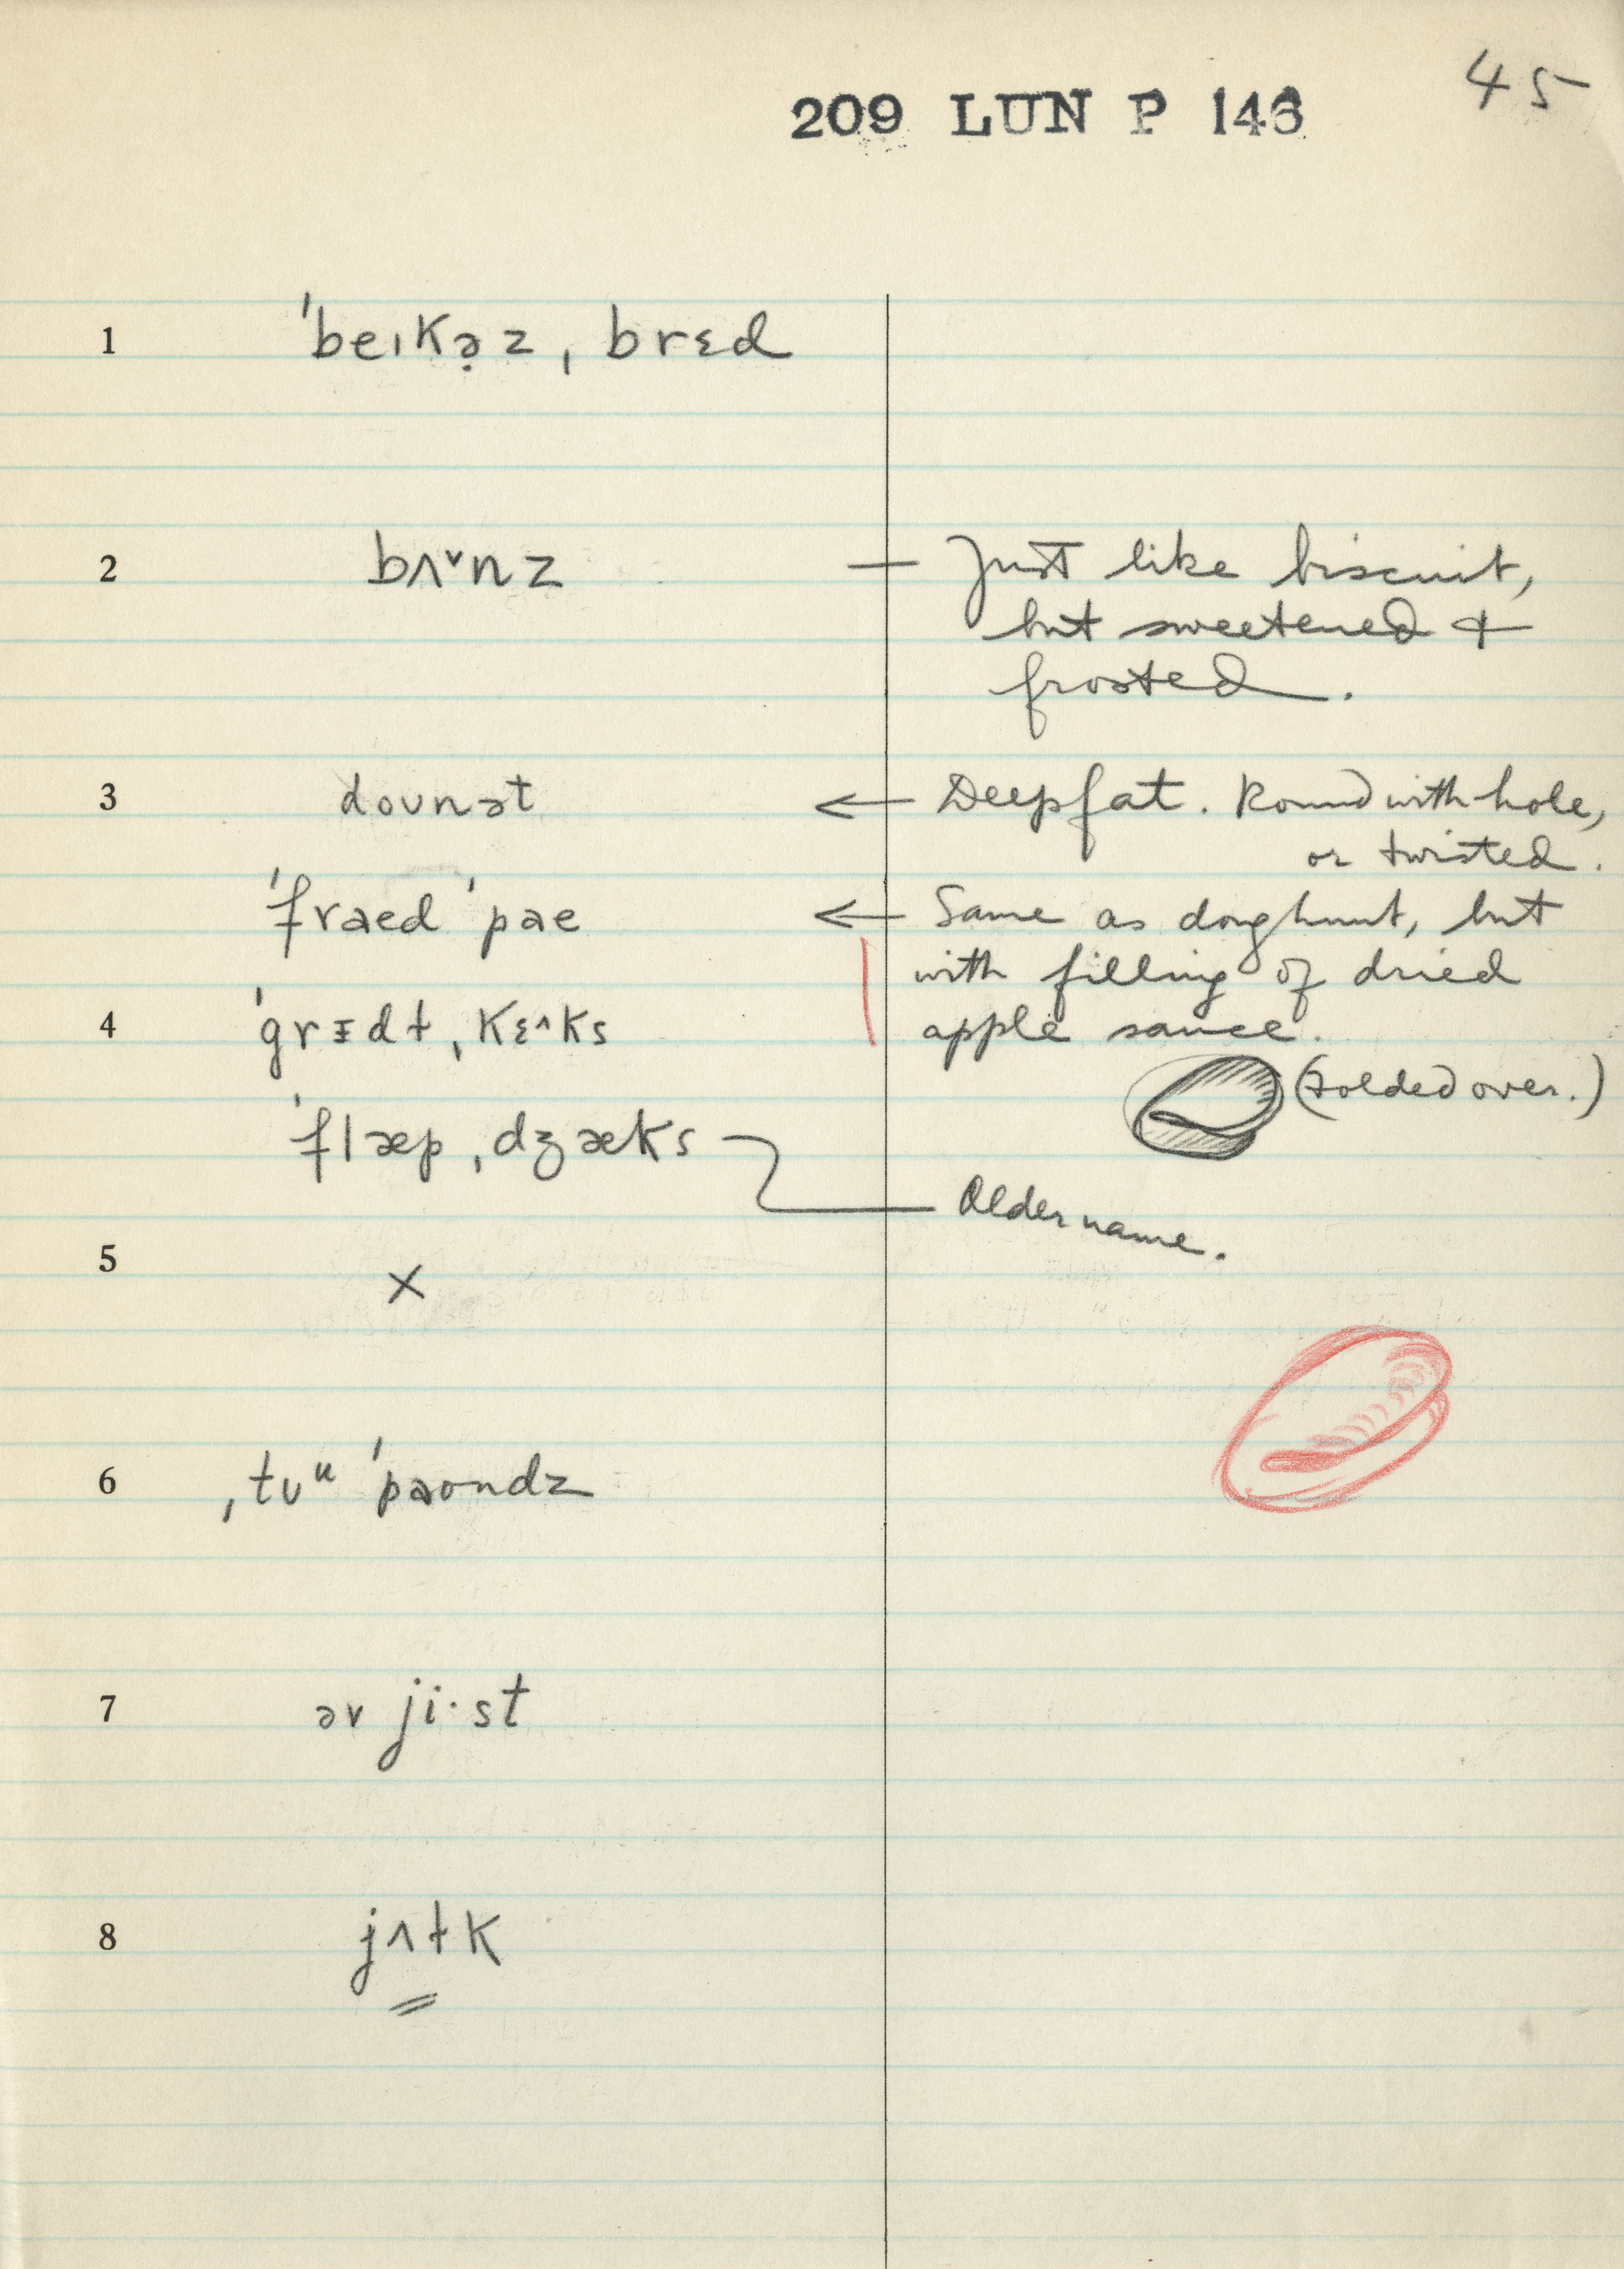 209 LUN P 146 45
1 ˈbeɪkə̣z ˌbrɛd
2 bʌˇnz — Just like biscuit,
but sweetened &
frosted.
3 doʊnət ← Deep fat. Round with hole,
or twisted.
ˈfraed ˈpae ← Same as doughnut, but
with filling of dried
4 ˈgrɪdɫ ˌkɛ^ks apple sauce.
(Folded over.)
ˈflæp ˌdʒæks
Older name.
5 X
6 ˌtʊᵘ ˈpaondz
7 əv ji·st
8 jʌɫk